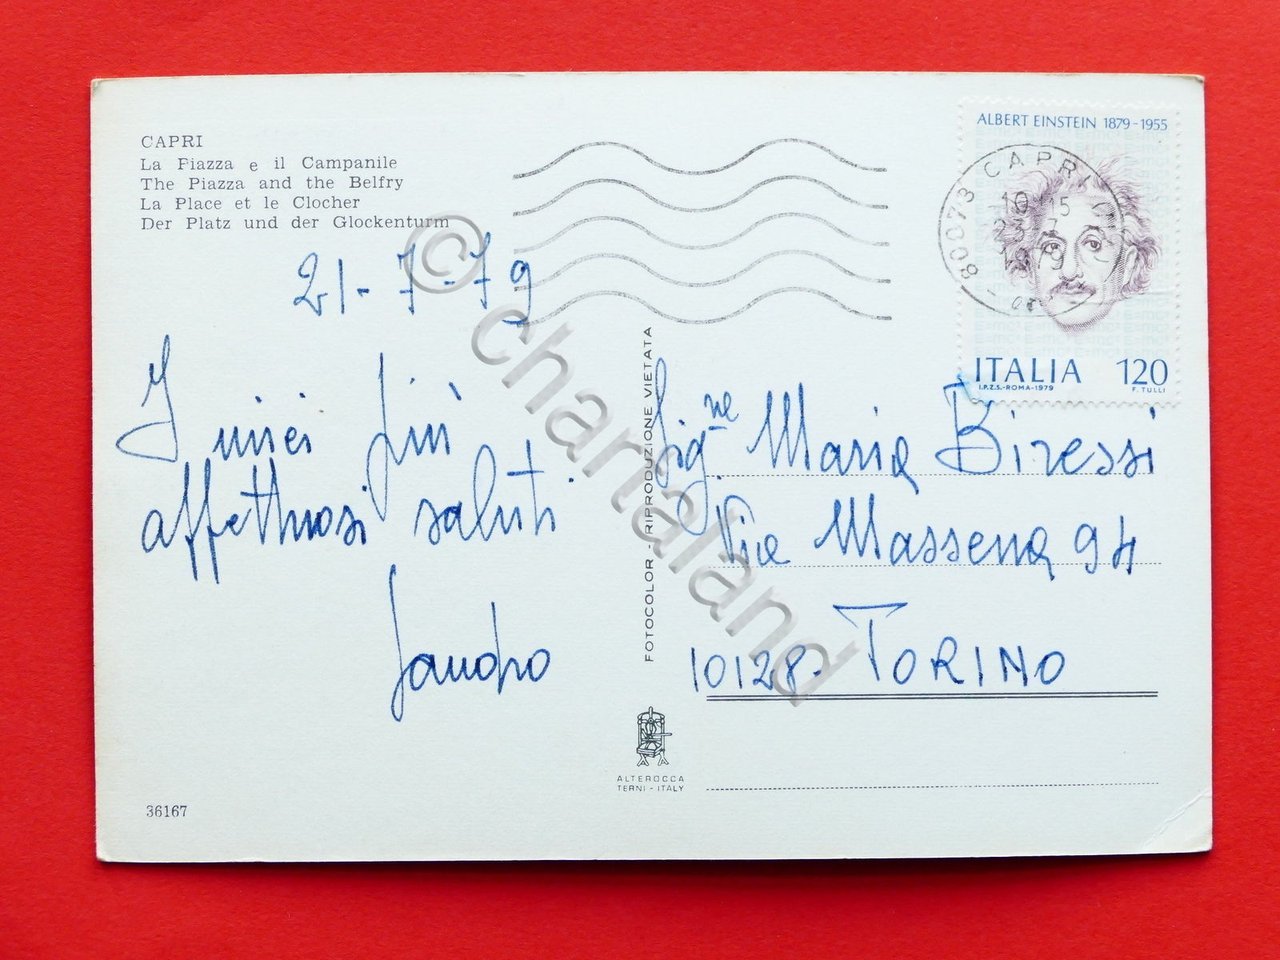 CAPRI
La Piazza e il Campanile
The Piazza and the Belfry
La Place et le Clocher
Der Platz und der Glockenturm
21-7-79
I miei più
affettuosi saluti
Sandro
36167
FOTOCOLOR - RIPRODUZIONE VIETATA
ALTEROCCA
TERNI - ITALY
ALBERT EINSTEIN 1879-1955
80073 CAPRI
10 15
23 7
1979
ITALIA 120
I.P.Z.S.-ROMA-1979 F. TULLI
Sig.ne Maria Biressi
Via Massena 94
10128. TORINO
© chartaland